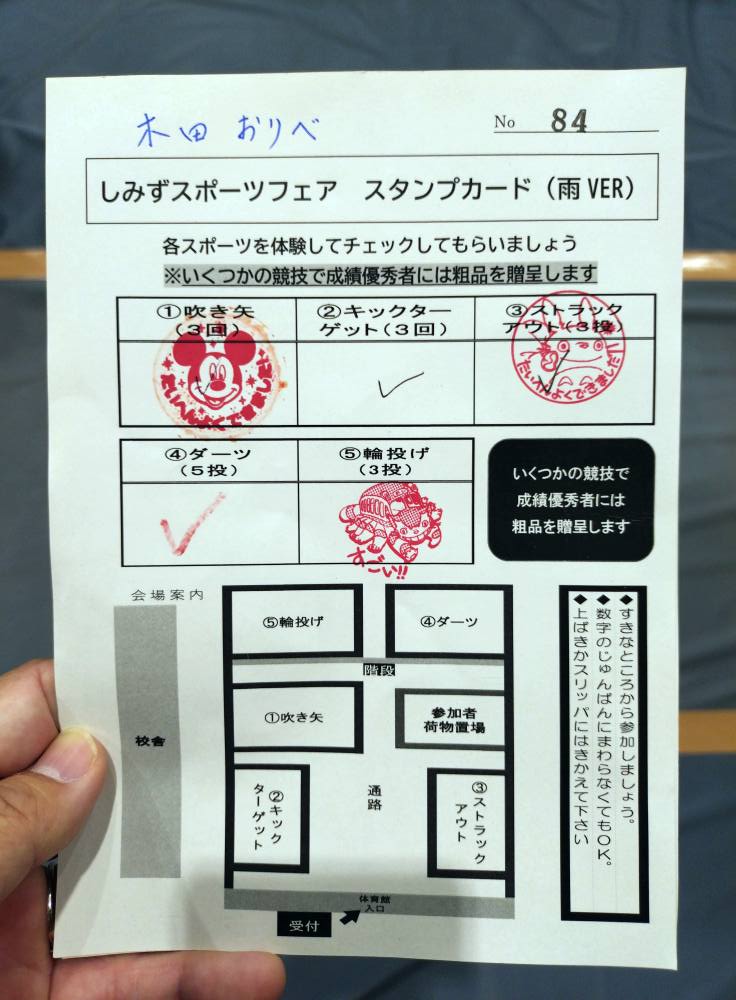 木田 おりべ
No 84
しみずスポーツフェア　スタンプカード（雨VER）
各スポーツを体験してチェックしてもらいましょう
※いくつかの競技で成績優秀者には粗品を贈呈します
①吹き矢
（３回）
②キックター
ゲット（３回）
③ストラック
アウト（３投）
たいへんよくできました
たいへんよくできました!
④ダーツ
（５投）
⑤輪投げ
（３投）
すごい!!
いくつかの競技で
成績優秀者には
粗品を贈呈します
会場案内
⑤輪投げ
④ダーツ
階段
①吹き矢
参加者
荷物置場
校舎
②キック
ターゲット
通路
③ストラック
アウト
体育館
入口
受付
◆すきなところから参加しましょう。
◆数字のじゅんばんにまわらなくてもＯＫ。
◆上ばきかスリッパにはきかえて下さい